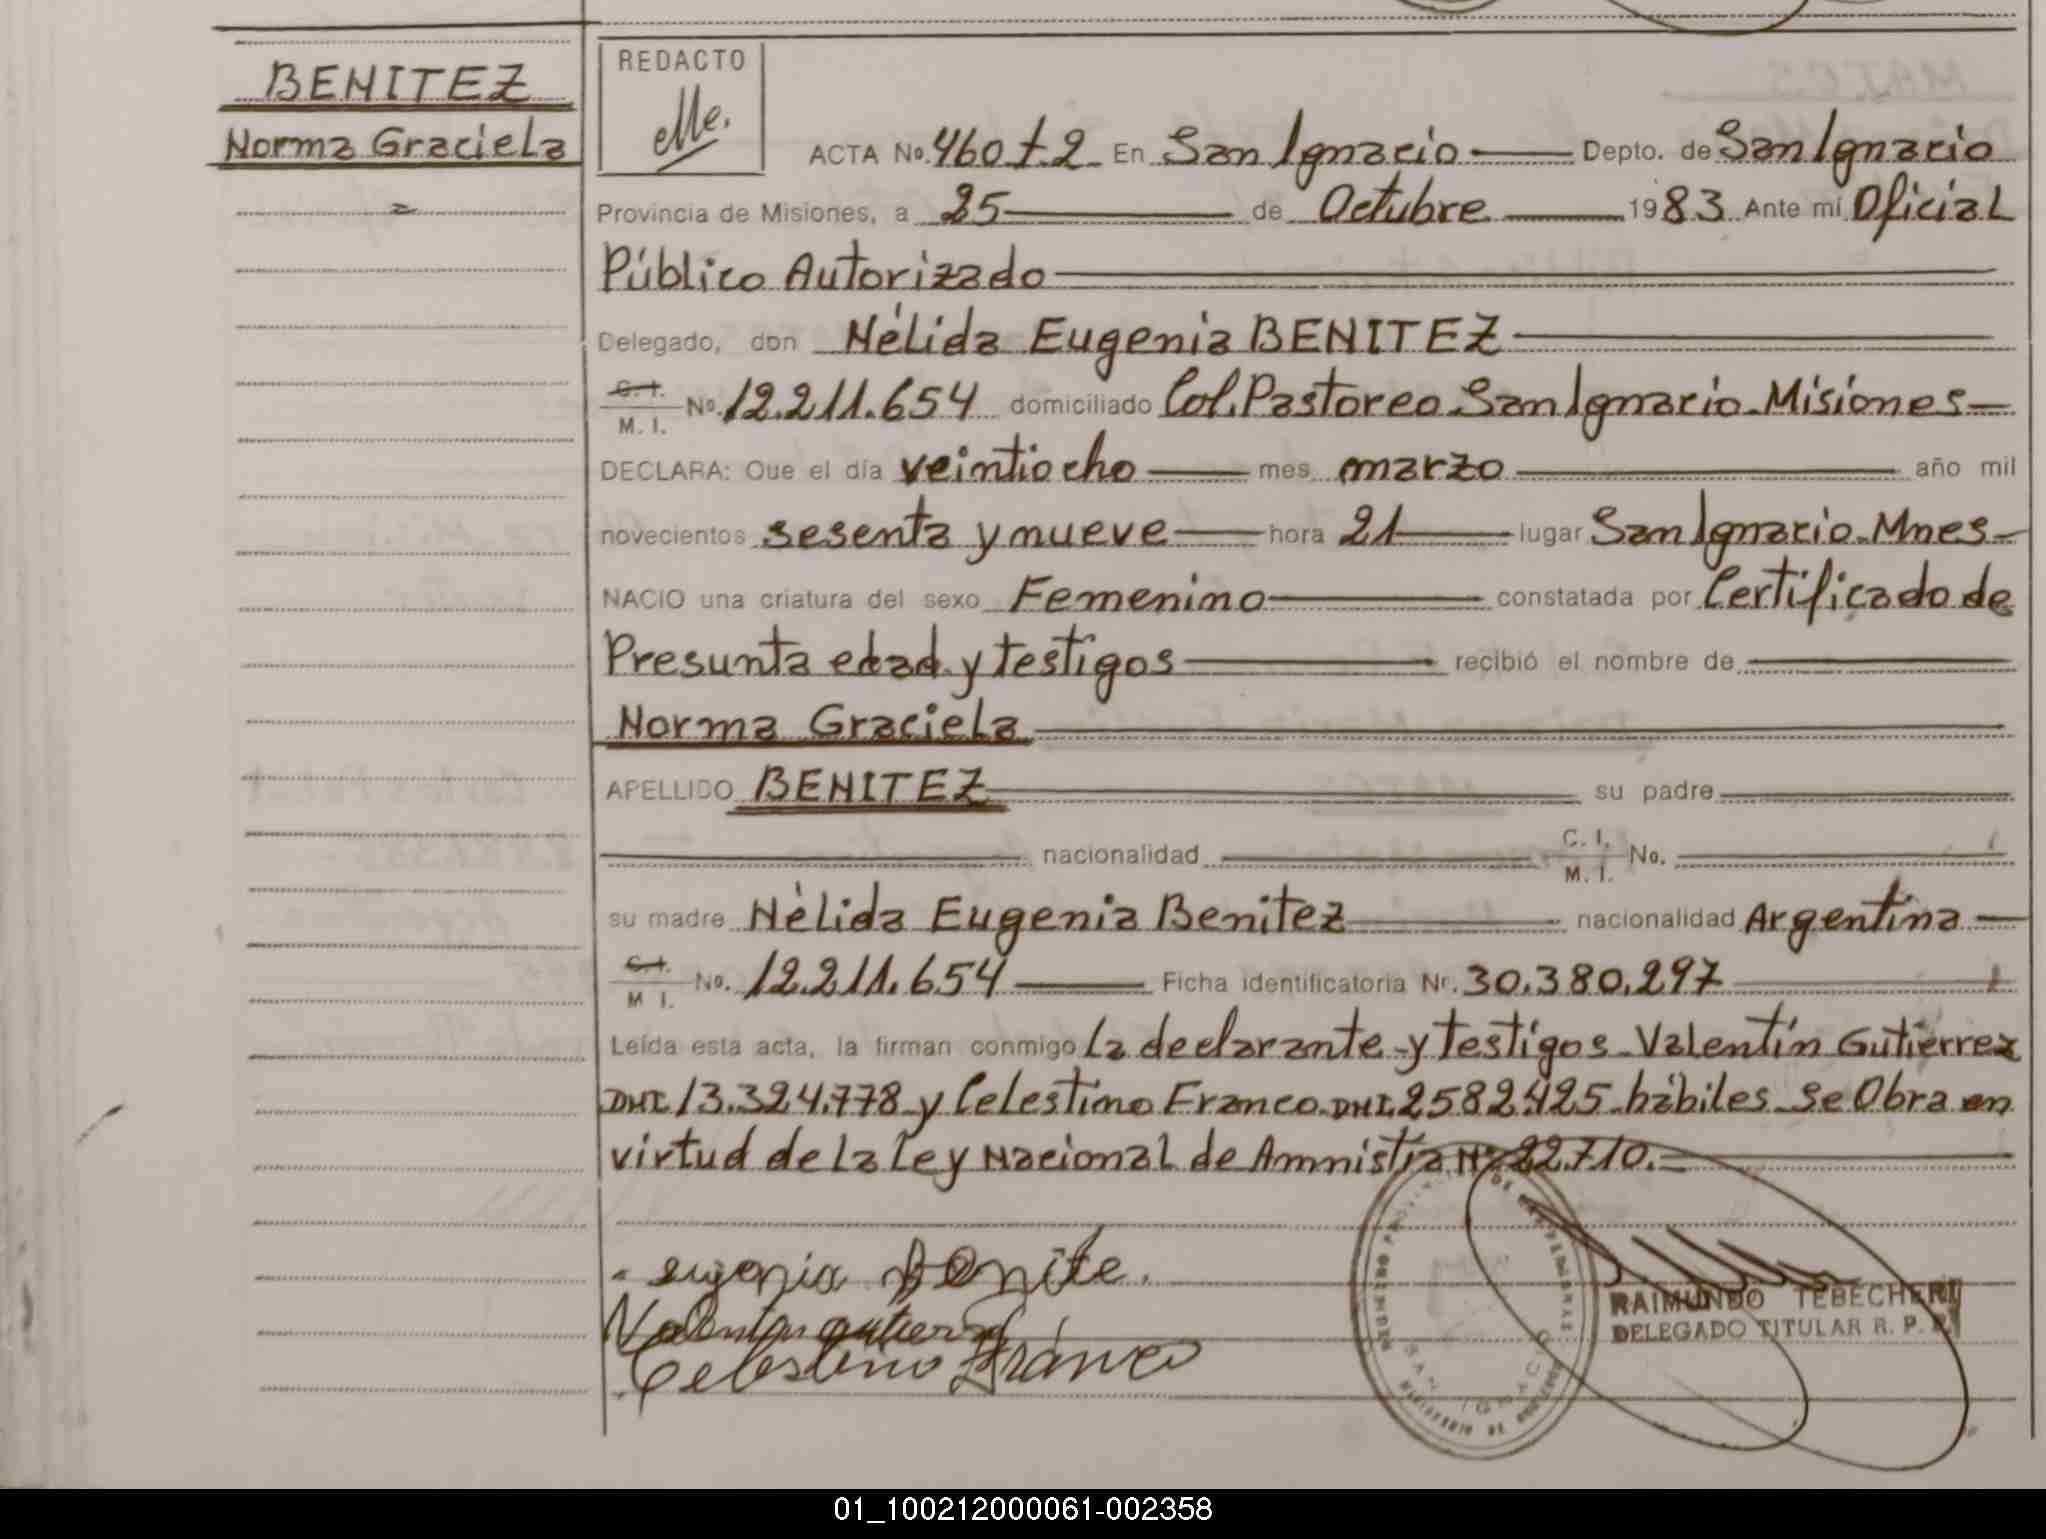 BENITEZ
Norma Graciela
REDACTO
ACTA No. 460 t.2 En San Ignacio Depto. de San Ignacio
Provincia de Misiones, a 25 de Octubre 1983 Ante mí Oficial
Público Autorizado
Delegado, don Nélida Eugenia BENITEZ
C. I. / M. I. No. 12.211.654 domiciliado Col. Pastoreo San Ignacio. Misiones
DECLARA: Que el día veintiocho mes marzo año mil
novecientos sesenta y nueve hora 21 lugar San Ignacio. Mnes
NACIO una criatura del sexo Femenino constatada por Certificado de
Presunta edad y testigos recibió el nombre de
Norma Graciela
APELLIDO BENITEZ su padre
nacionalidad C. I. / M. I. No.
su madre Nélida Eugenia Benitez nacionalidad Argentina
C. I. / M. I. No. 12.211.654 Ficha identificatoria Nr. 30.380.297
Leída esta acta, la firman conmigo la declarante y testigos Valentín Gutiérrez
DNI 13.324.778 y Celestino Franco DNI. 2582425 hábiles se Obra en
virtud de la Ley Nacional de Amnistía Nº 22.710.=
eugenia Benite.
Valentin gutierrez
Celestino Franco
SAN IGNACIO
RAIMUNDO TEBECHERI
DELEGADO TITULAR R. P. P.
01_100212000061-002358